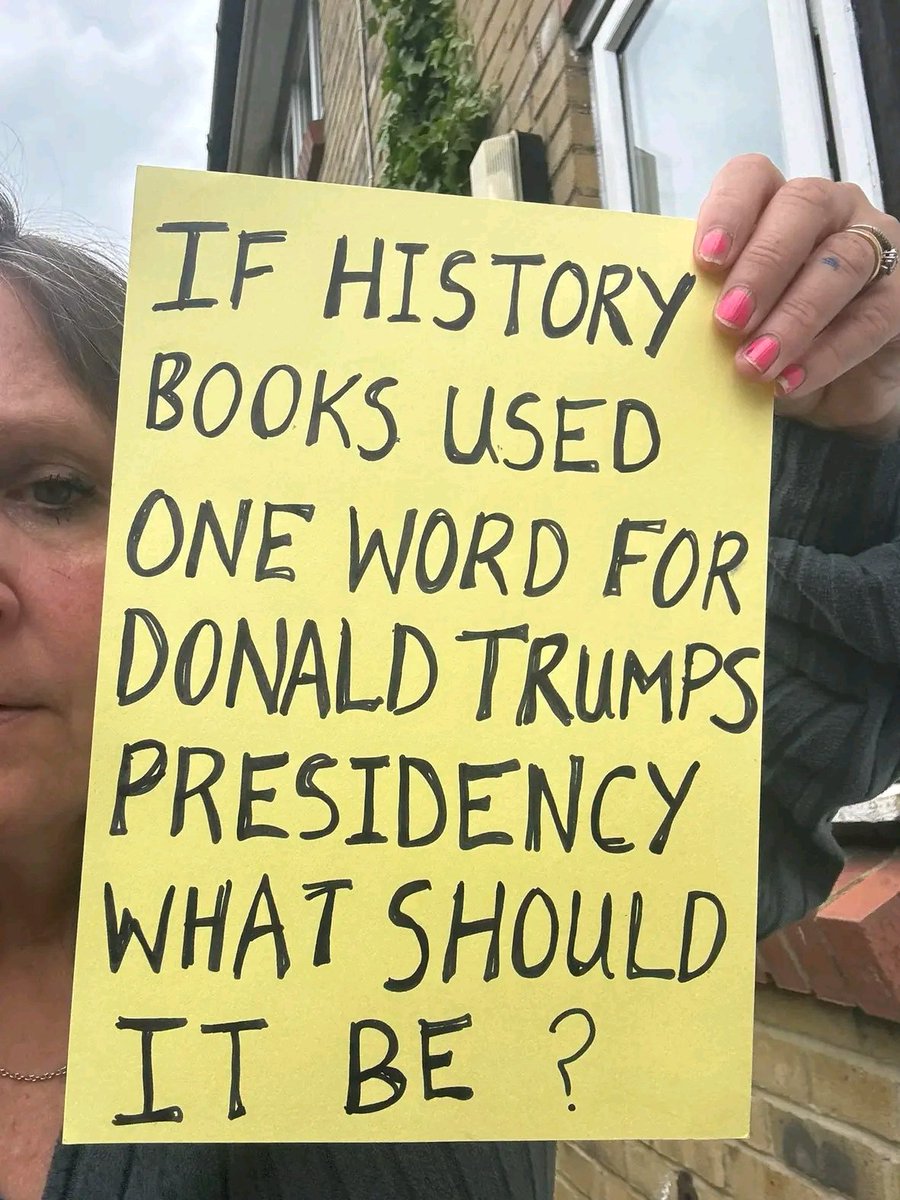 IF HISTORY
BOOKS USED
ONE WORD FOR
DONALD TRUMPS
PRESIDENCY
WHAT SHOULD
IT BE ?